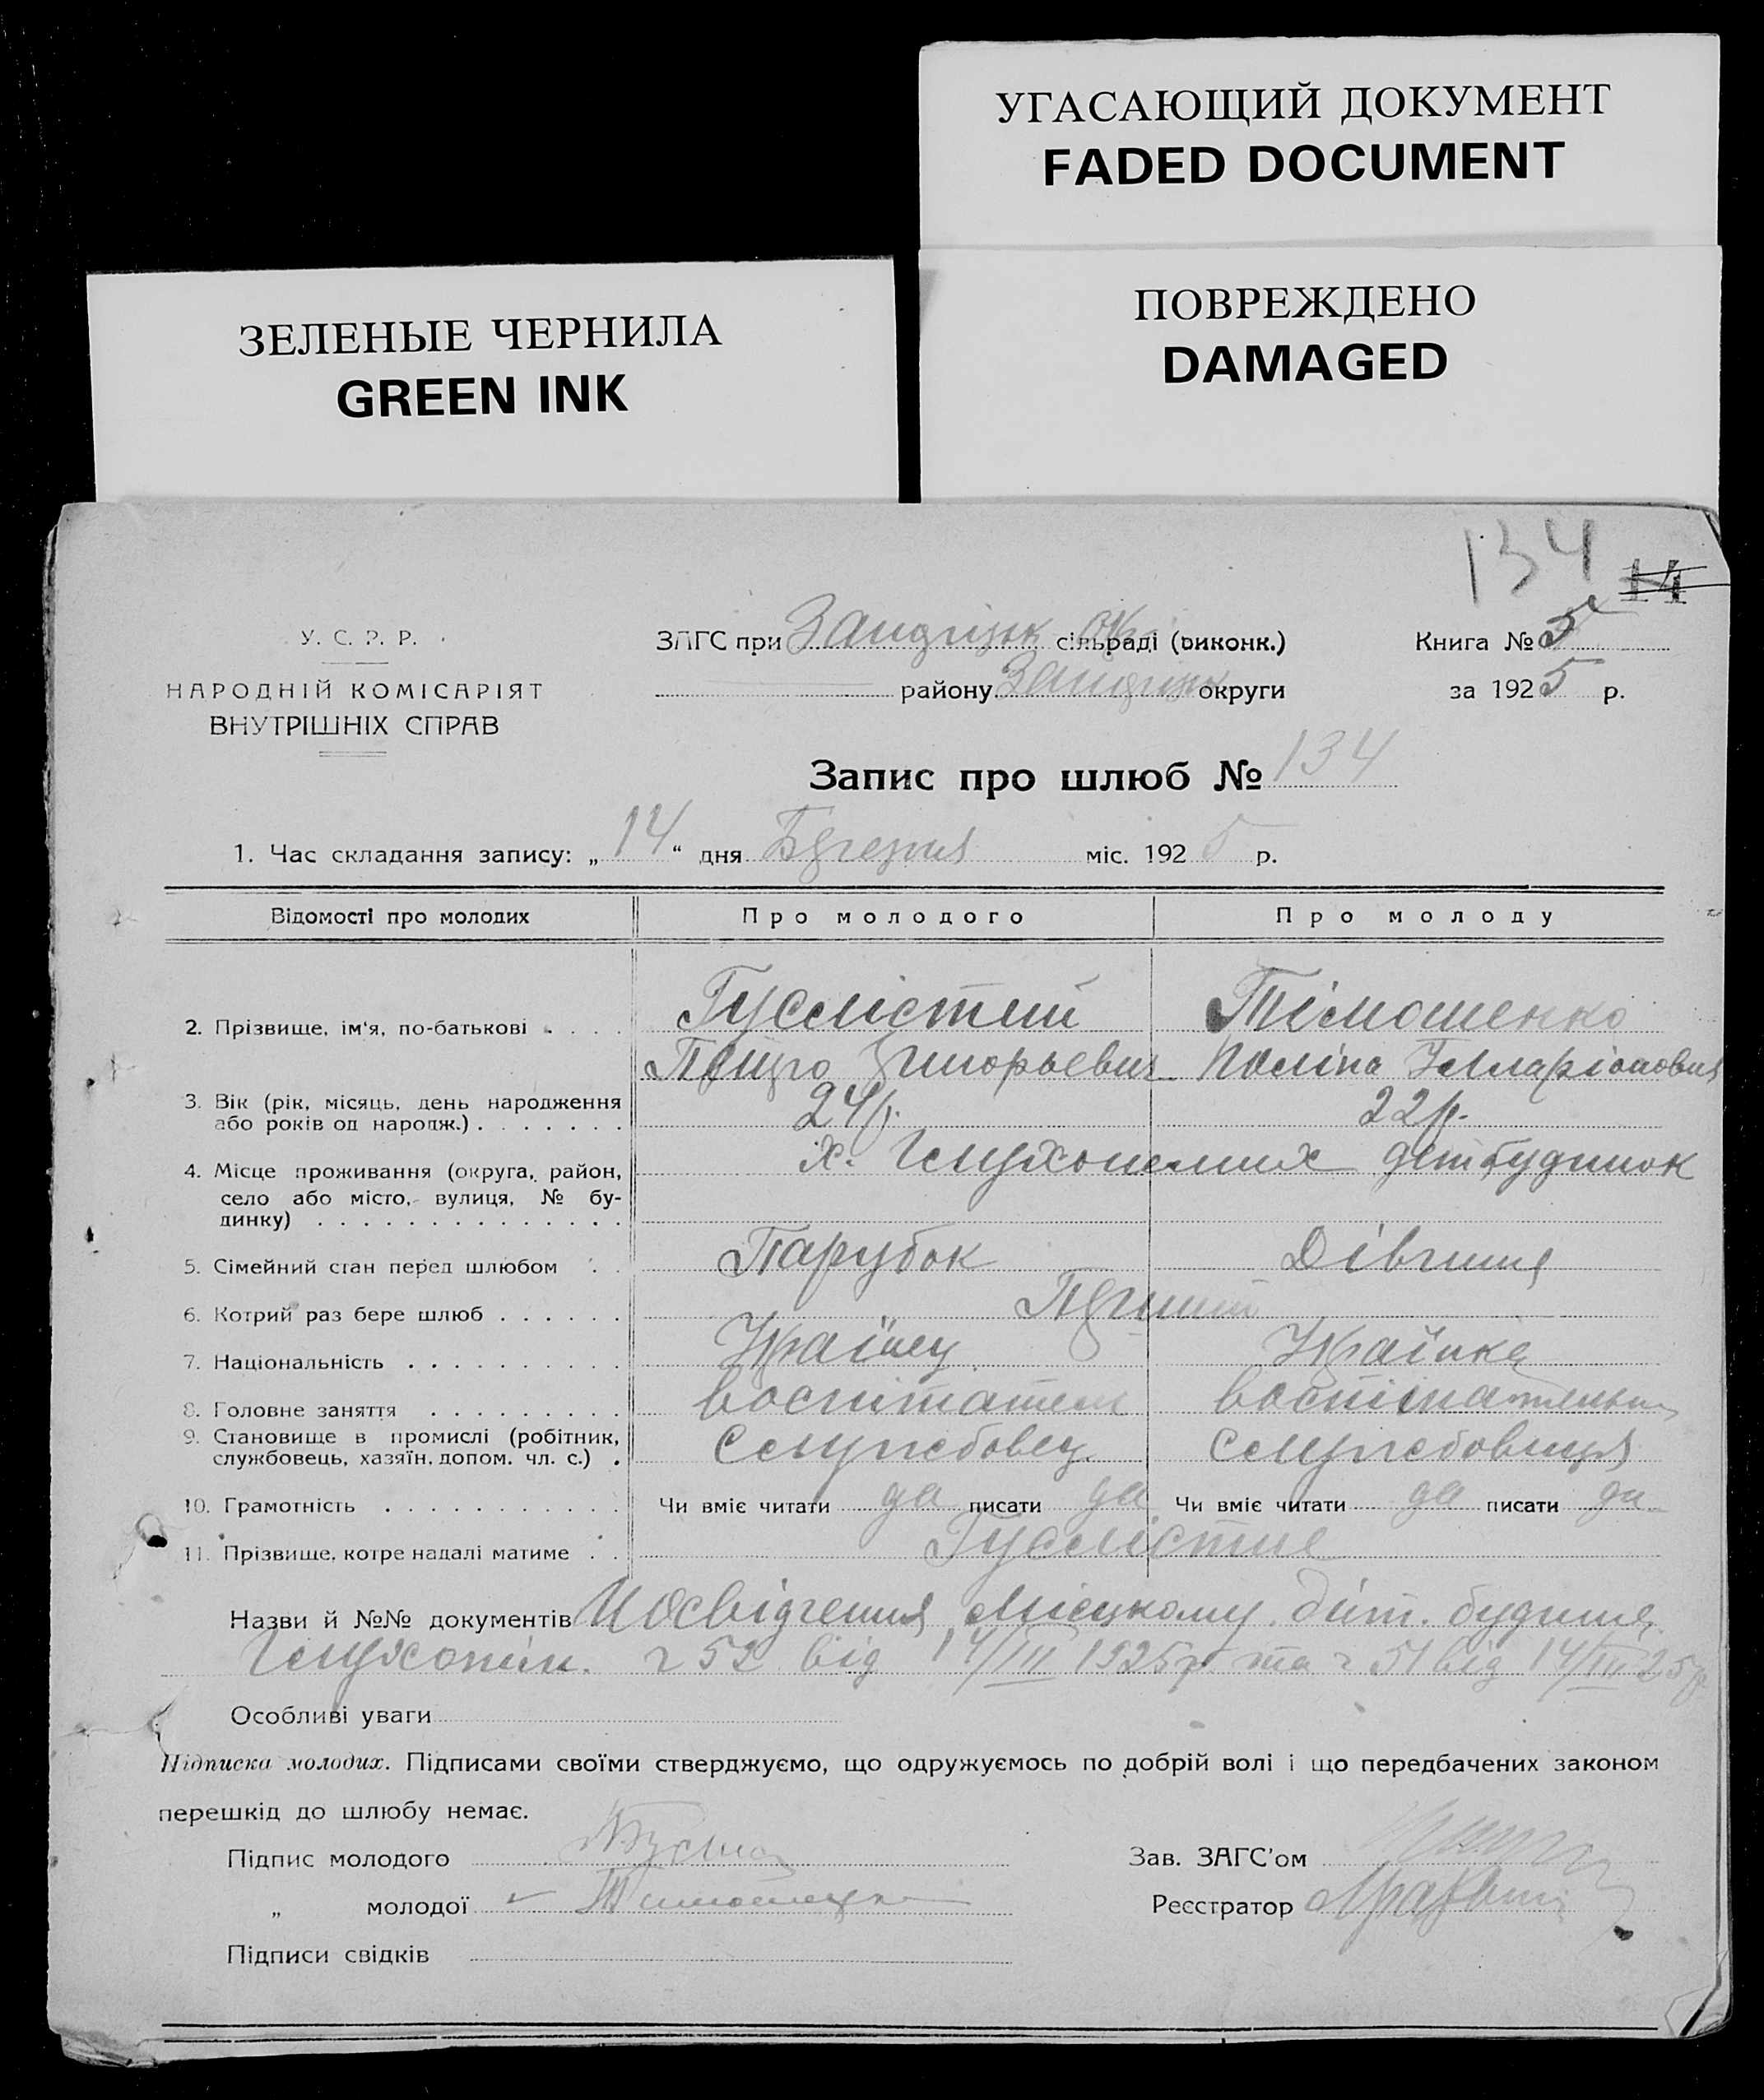 УГАСАЮЩИЙ ДОКУМЕНТ
FADED DOCUMENT
ЗЕЛЕНЫЕ ЧЕРНИЛА
GREEN INK
ПОВРЕЖДЕНО
DAMAGED
134
14
У. С. Р. Р.
НАРОДНІЙ КОМІСАРІЯТ
ВНУТРІШНІХ СПРАВ
ЗАГС при сільраді (виконк.)
району округи
Книга № 5
за 1925 р.
Запис про шлюб № 134
1. Час складання запису: „14“ дня Березня міс. 1925 р.
Відомості про молодих Про молодого Про молоду
2. Прізвище, ім'я, по-батькові . . . . Гуслістий Тімошенко
Петро Григорьевич Поліна
3. Вік (рік, місяць, день народження
або років од народж.) . . . . . . . 24р. 22р.
4. Місце проживання (округа, район,
село або місто, вулиця, № бу-
динку) . . . . . . . . . . . . . .
х. Глухонемих дет будинок
5. Сімейний стан перед шлюбом . . Парубок Дівчина
6. Котрий раз бере шлюб . . . . . . Перший
7. Національність . . . . . . . . . . Украінец Украінка
8. Головне заняття . . . . . . . . . воспитатель
9. Становище в промислі (робітник,
службовець, хазяїн, допом. чл. с.) . Служебовец Служебовиця
10. Грамотність . . . . . . . . . . . Чи вміє читати да писати да Чи вміє читати да писати да
11. Прізвище, котре надалі матиме . . Гуслістие
Назви й №№ документів Посвідчення Міському діт. будинку
Глухонім. ч 52 від 14/III 1925р та ч 51 від 14/III 25р.
Особливі уваги
Підписка молодих. Підписами своїми стверджуємо, що одружуємось по добрій волі і що передбачених законом
перешкід до шлюбу немає.
Підпис молодого
„ молодої Тимошенко
Підписи свідків
Зав. ЗАГС'ом
Реєстратор